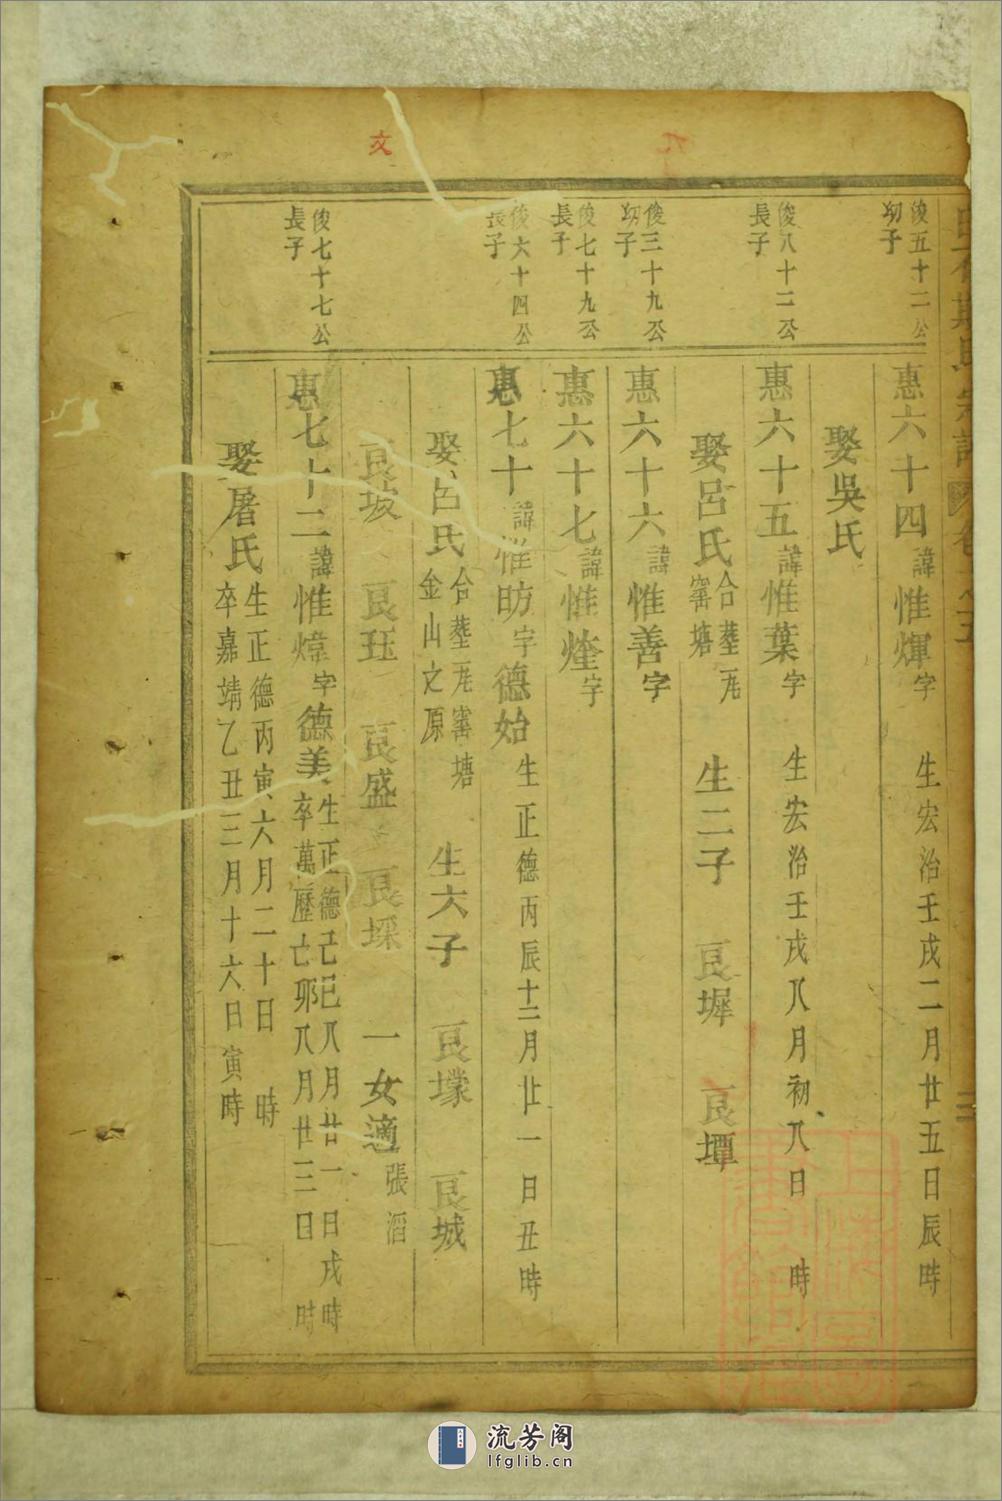 俊五十二公
幼子
惠六十四諱惟煇字 生宏治壬戌二月廿五日辰時
娶吳氏
俊八十二公
長子
惠六十五諱惟葉字 生宏治壬戌八月初八日 時
娶呂氏合塟瓦窰塘 生二子 良墀 良墰
俊三十九公
幼子
惠六十六諱惟善字
俊七十九公
長子
惠六十七諱惟烇字
俊六十四公
長子
惠七十諱惟昉字德始 生正德丙辰十二月廿一日丑時
娶呂氏合塟瓦窰塘金山之原 生六子 良墚 良城
良坡 良珏 良盛 良埰 一女適張滔
俊七十七公
長子
惠七十二諱惟煒字德美生正德己巳八月廿一日戌時卒萬歷己卯八月廿三日 時
娶屠氏生正德丙寅六月二十日 時卒嘉靖乙丑三月十六日寅時
文
上海圖書館藏
流芳阁
lfglib.cn